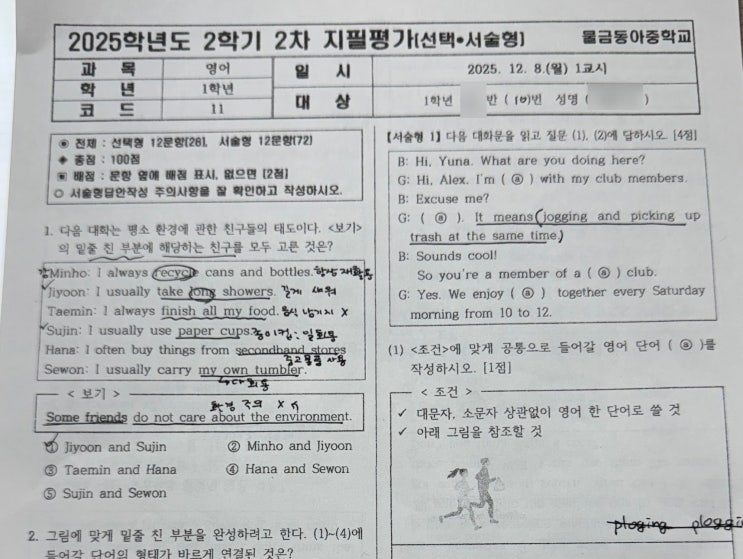 2025학년도 2학기 2차 지필평가(선택•서술형) 물금동아중학교
과 목 영어 일 시 2025. 12. 8.(월) 1교시
학 년 1학년 대 상 1학년 반 ( 10)번 성명 ( )
코 드 11
◉ 전체 : 선택형 12문항(28), 서술형 12문항(72)
◈ 총점 : 100점
▣ 배점 : 문항 옆에 배점 표시, 없으면 [2점]
◎ 서술형답안작성 주의사항을 잘 확인하고 작성하시오.
1. 다음 대화는 평소 환경에 관한 친구들의 태도이다. <보기>
의 밑줄 친 부분에 해당하는 친구를 모두 고른 것은?
Minho: I always recycle cans and bottles. 항상 재활용
Jiyoon: I usually take long showers. 길게 샤워
Taemin: I always finish all my food. 음식 남기지 X
Sujin: I usually use paper cups. 종이컵: 일회용
Hana: I often buy things from secondhand stores
중고물품 사용
Sewon: I usually carry my own tumbler.
↳다회용
< 보기 >
환경 X
Some friends do not care about the environment.
① Jiyoon and Sujin ② Minho and Jiyoon
③ Taemin and Hana ④ Hana and Sewon
⑤ Sujin and Sewon
2. 그림에 맞게 밑줄 친 부분을 완성하려고 한다. (1)~(4)에
들어갈 단어의 형태가 바르게 연결된 것은?
【서술형 1】 다음 대화문을 읽고 질문 (1), (2)에 답하시오. [4점]
B: Hi, Yuna. What are you doing here?
G: Hi, Alex. I'm ( ⓐ ) with my club members.
B: Excuse me?
G: ( ⓐ ). It means jogging and picking up
trash at the same time.
B: Sounds cool!
So you're a member of a ( ⓐ ) club.
G: Yes. We enjoy ( ⓐ ) together every Saturday
morning from 10 to 12.
(1) <조건>에 맞게 공통으로 들어갈 영어 단어 ( ⓐ )를
작성하시오. [1점]
< 조건 >
✓ 대문자, 소문자 상관없이 영어 한 단어로 쓸 것
✓ 아래 그림을 참조할 것
ploging